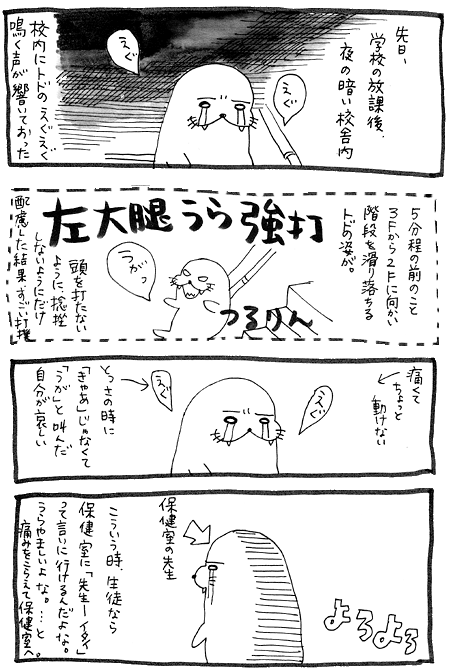 先日、
学校の放課後、
夜の暗い校舎内
えぐ
えぐ
校内にトドのえぐえぐ
鳴く声が響いておった
5分程の前のこと
3Fから2Fに向かい
階段を滑り落ちる
トドの姿が。
左大腿うら強打
つるりん
うがっ
頭を打たない
ように、捻挫
しないようにだけ
配慮した結果すごい打撲
痛くて
ちょっと
動けない
えぐ
えぐ
とっさの時に
「きゃあ」じゃなくて
「うが」と叫んだ
自分が哀しい
よろよろ
保健室の先生
こういう時、生徒なら
保健室に「先生ーイタイ」
って言いに行けるんだよな。
うらやましいよな。…と
痛みをこらえて保健室へ